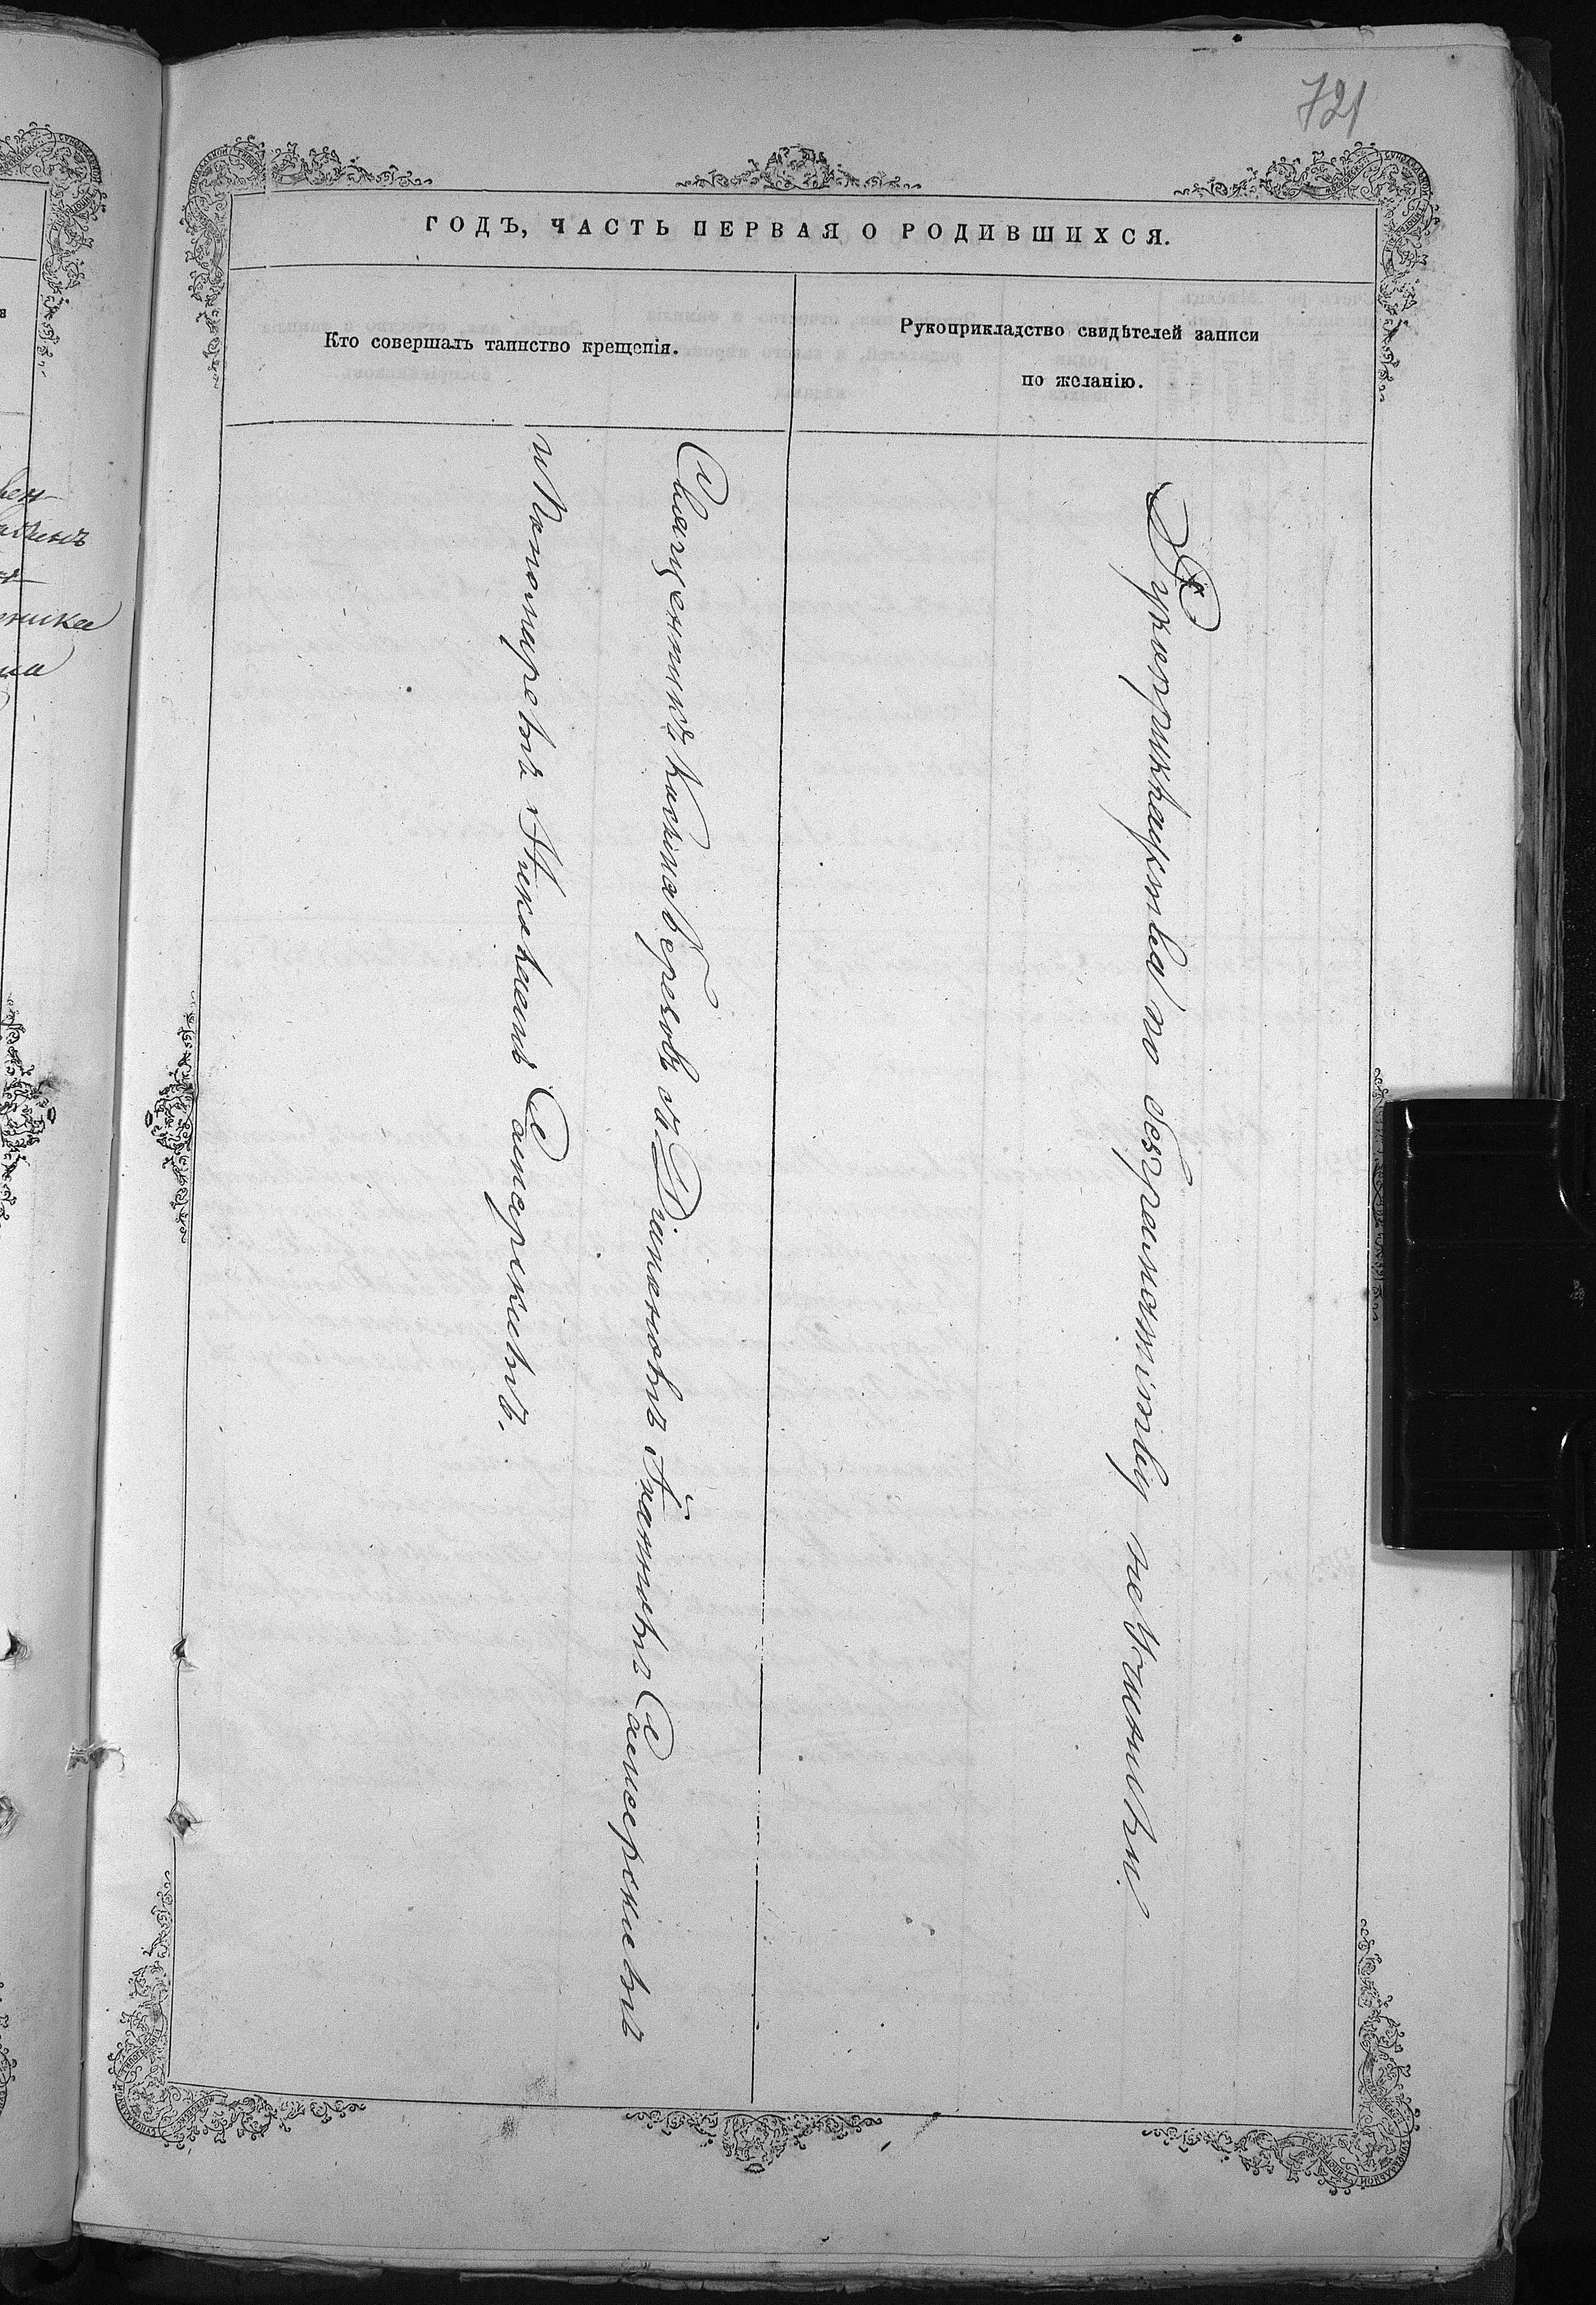 721
ГОДЪ, ЧАСТЬ ПЕРВАЯ О РОДИВШИХСЯ.
Кто совершалъ таинство крещенія.
Рукоприкладство свидѣтелей записи
по желанію.
Священникъ Косьма Березовъ съ Діакономъ Іоанномъ Самсерскимъ
и Пономаремъ Николаемъ Самсерскимъ.
Рукоприкладства по безграмотству не учинено